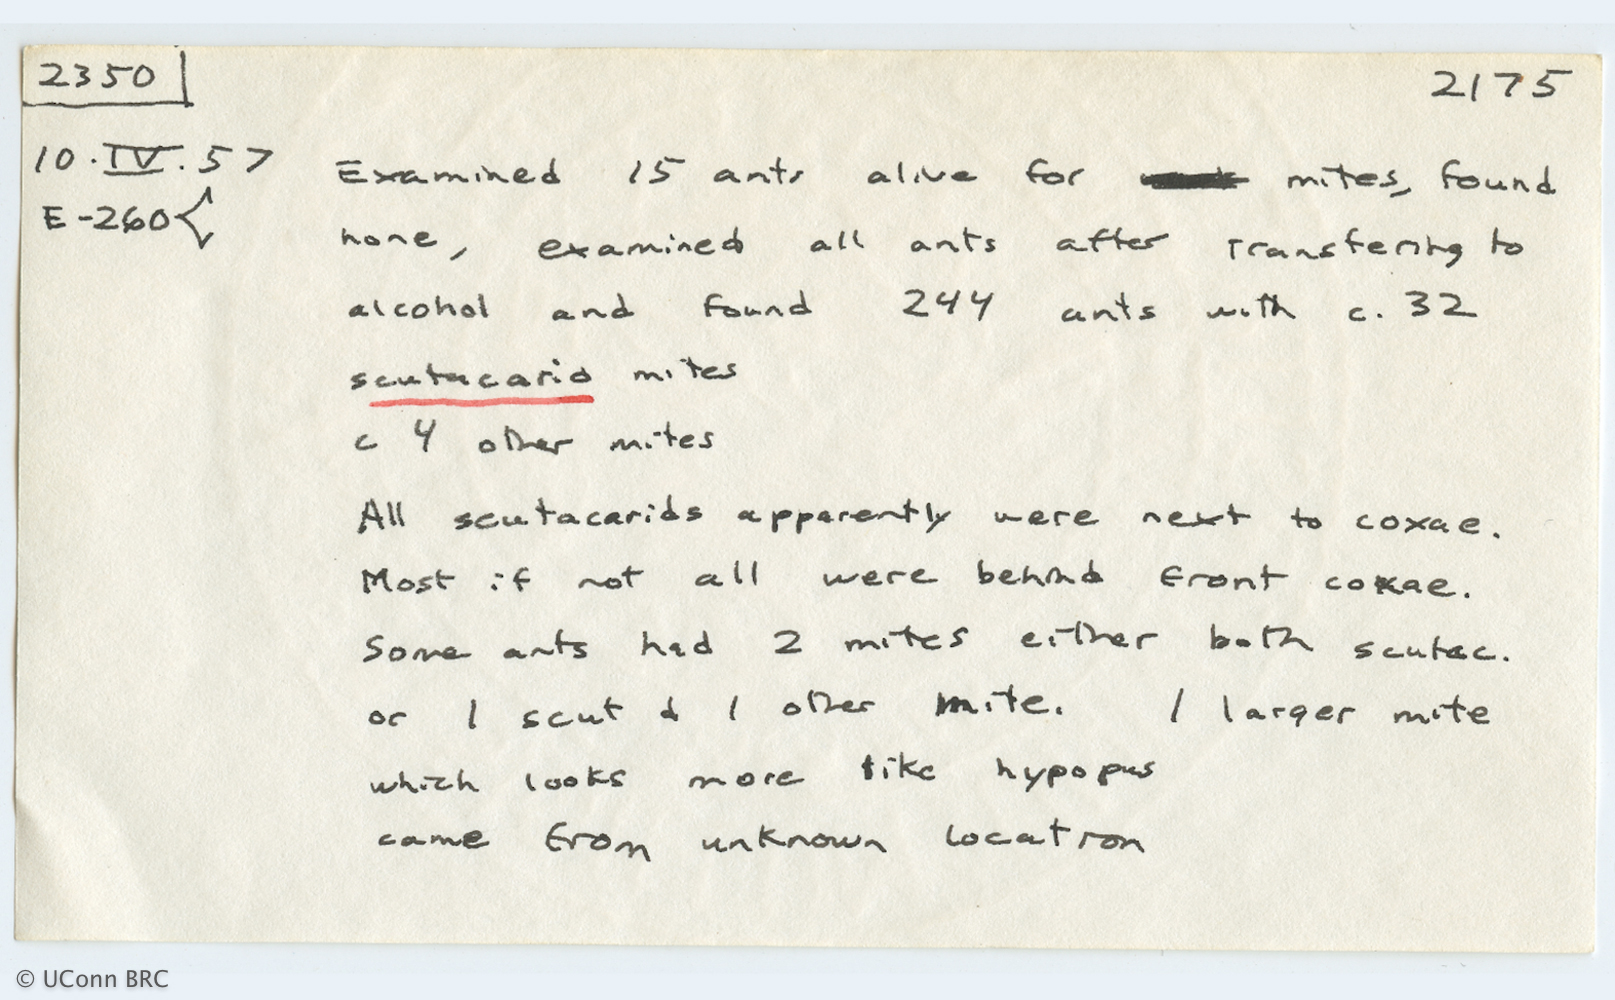 2350 2175
10.IV.57 Examined 15 ants alive for mites, found
E-260< none, examined all ants after transfering to
alcohol and found 244 ants with c. 32
scutacarid mites
c 4 other mites
All scutacarids apparently were next to coxae.
Most if not all were behind front coxae.
Some ants had 2 mites either both scutac.
or 1 scut & 1 other mite. 1 larger mite
which looks more like hypopus
came from unknown location
© UConn BRC